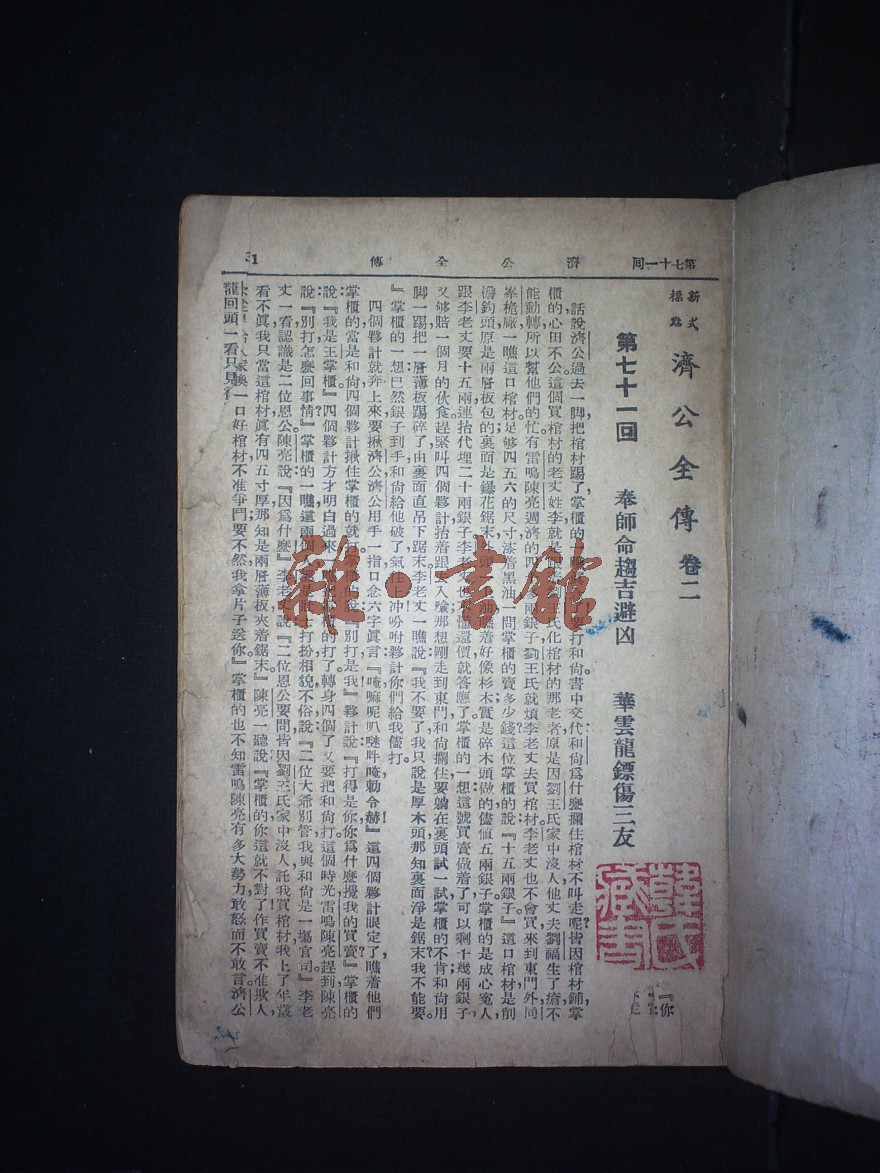 第七十一回 濟公全傳 1
新式標點 濟公全傳 卷二
第七十一回 奉師命趨吉避凶 華雲龍鏢傷三友
話說濟公過去一脚把棺材踢了掌櫃的 打和尚書中交代和尚爲什麼攔住棺材不叫走呢皆因棺材鋪掌
櫃的心田不公這個買棺材的老丈姓李就是 氏化棺材的那老者原是因劉王氏家中沒人他丈夫劉福生了瘡不
能動轉所以幫他們的忙有雷鳴陳亮週濟的四 兩銀子劉王氏就煩李老丈去買棺材李老丈也不會買來到東門外同
峯桅廠一瞧這口棺材足够四五六的尺寸漆着黑油一問掌櫃的賣多少錢這位掌櫃的說『十五兩銀子』這口棺材是刨
鈎頭原是兩層板包的裏面是鏍花鋸末 油瞧着好像杉木實是碎木頭做的儘值五兩銀子掌櫃的是成心寃人
跟李老丈要十五兩連抬代埋二十兩銀子李老丈也 懂還價就答應了掌櫃的一想這號買賣做着了可以剩十幾兩銀子
又够賠一個月的伙食趕緊叫四個夥計抬着跟 入殮那想剛走到東門和尚攔住要躺在裏頭試一試掌櫃的不肯和尚用
脚一踢把一層薄板踢碎了由裏面直吊下踞末李老丈一瞧說『我不要了我只說是厚木頭那知裏面淨是鋸末我不能要
』掌櫃的一想已然銀子到手和尚給他破了氣往上冲吩咐夥計你們給我儘打
四個夥計就奔上來要揪濟公濟公用手一指口念六字眞言『唵嘛呢叭 吽唵勅令赫』這四個夥計眼定了瞧着他們
掌櫃的當是和尚四個夥計揪住掌櫃的就打 說 別打是我』夥計說『打得是你你爲什麼攪我的買賣』掌櫃的
說『我是王掌櫃』四個夥計方才明白過來一 的打了轉身四個了又要把和尚打這個時光雷鳴陳亮趕到陳亮
說『別打怎麼回事情』掌櫃的一瞧這兩個 打扮相貌不俗說『二位大爺別管我與和尚是一塲官司』李老
丈一看認識是二位恩公陳亮說『因爲什麼』李老 說『二位恩公要問皆因劉王氏家中沒人託我買棺材我上了年歲
看不眞我只當這棺材眞有四五寸厚那知是兩層薄板夾着鋸末』陳亮一聽說『掌櫃的你這就不對了作買賣不准欺人
給人家換一口好棺材不准爭鬥要不然我拿片子送你』掌櫃的也不知雷鳴陳亮有多大勢力敢怒而不敢言濟公
龍回頭一看只見
韓氏藏書
雜·書館
『你